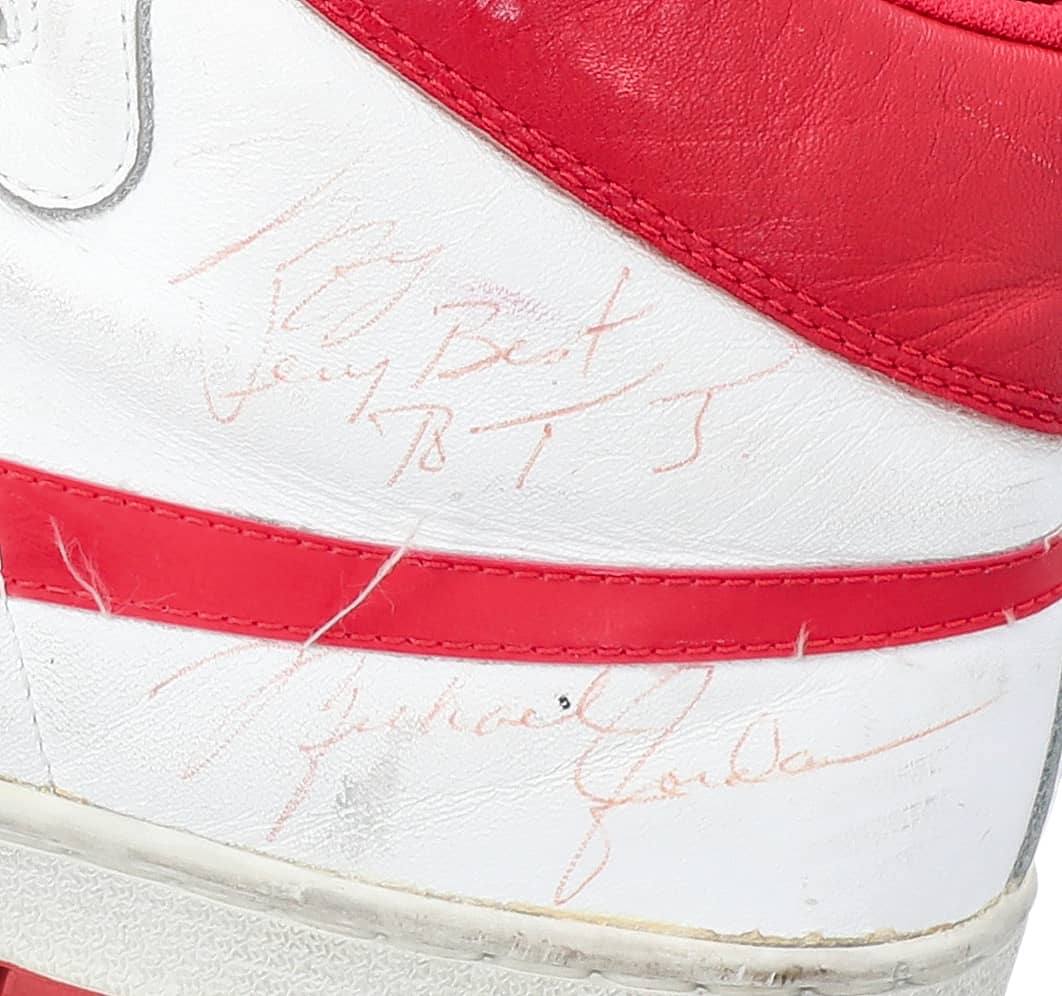 My
Very Best
To T. J.
Michael Jordan